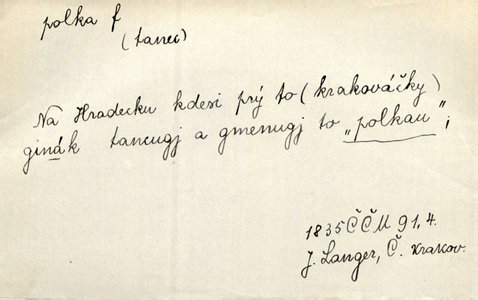 polka f
(tanec)
Na Hradecku kdesi prý to (krakováčky)
ginák tancugj a gmenugj to „polkau“;
1835 ČČM 91, 4.
J. Langer, Č. krakov.